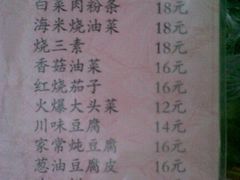 白菜肉粉条 18元
海米烧油菜 18元
烧三素 18元
香菇油菜 16元
红烧茄子 16元
火爆大头菜 12元
川味豆腐 14元
家常炖豆腐 16元
葱油豆腐皮 16元